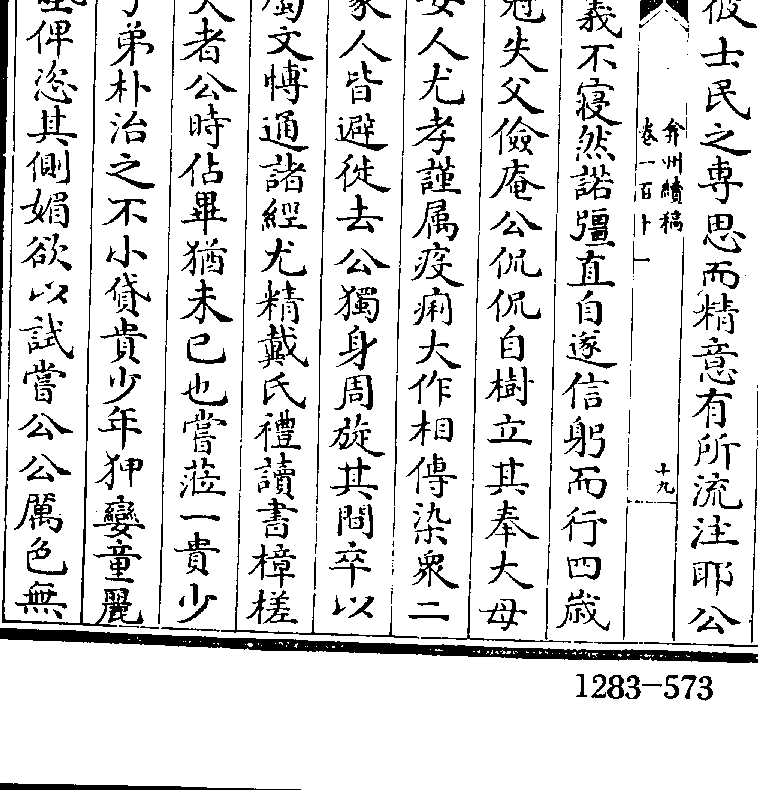 彼士民之専思而精意有所流注耶公
弇州續稿
卷一百十一
十九
義不寝然諾彊直自遂信躬而行四歳
失父儉庵公侃侃自樹立其奉大母
人尤孝謹属疫痢大作相傳染衆二
家人皆避徙去公獨身周旋其間卒以
文博通諸經尤精戴氏禮讀書樟槎
者公時佔畢猶未已也嘗蒞一貴少
弟朴治之不小貸貴少年狎孌童麗
俾恣其側媚欲以試嘗公公厲色無
1283-573